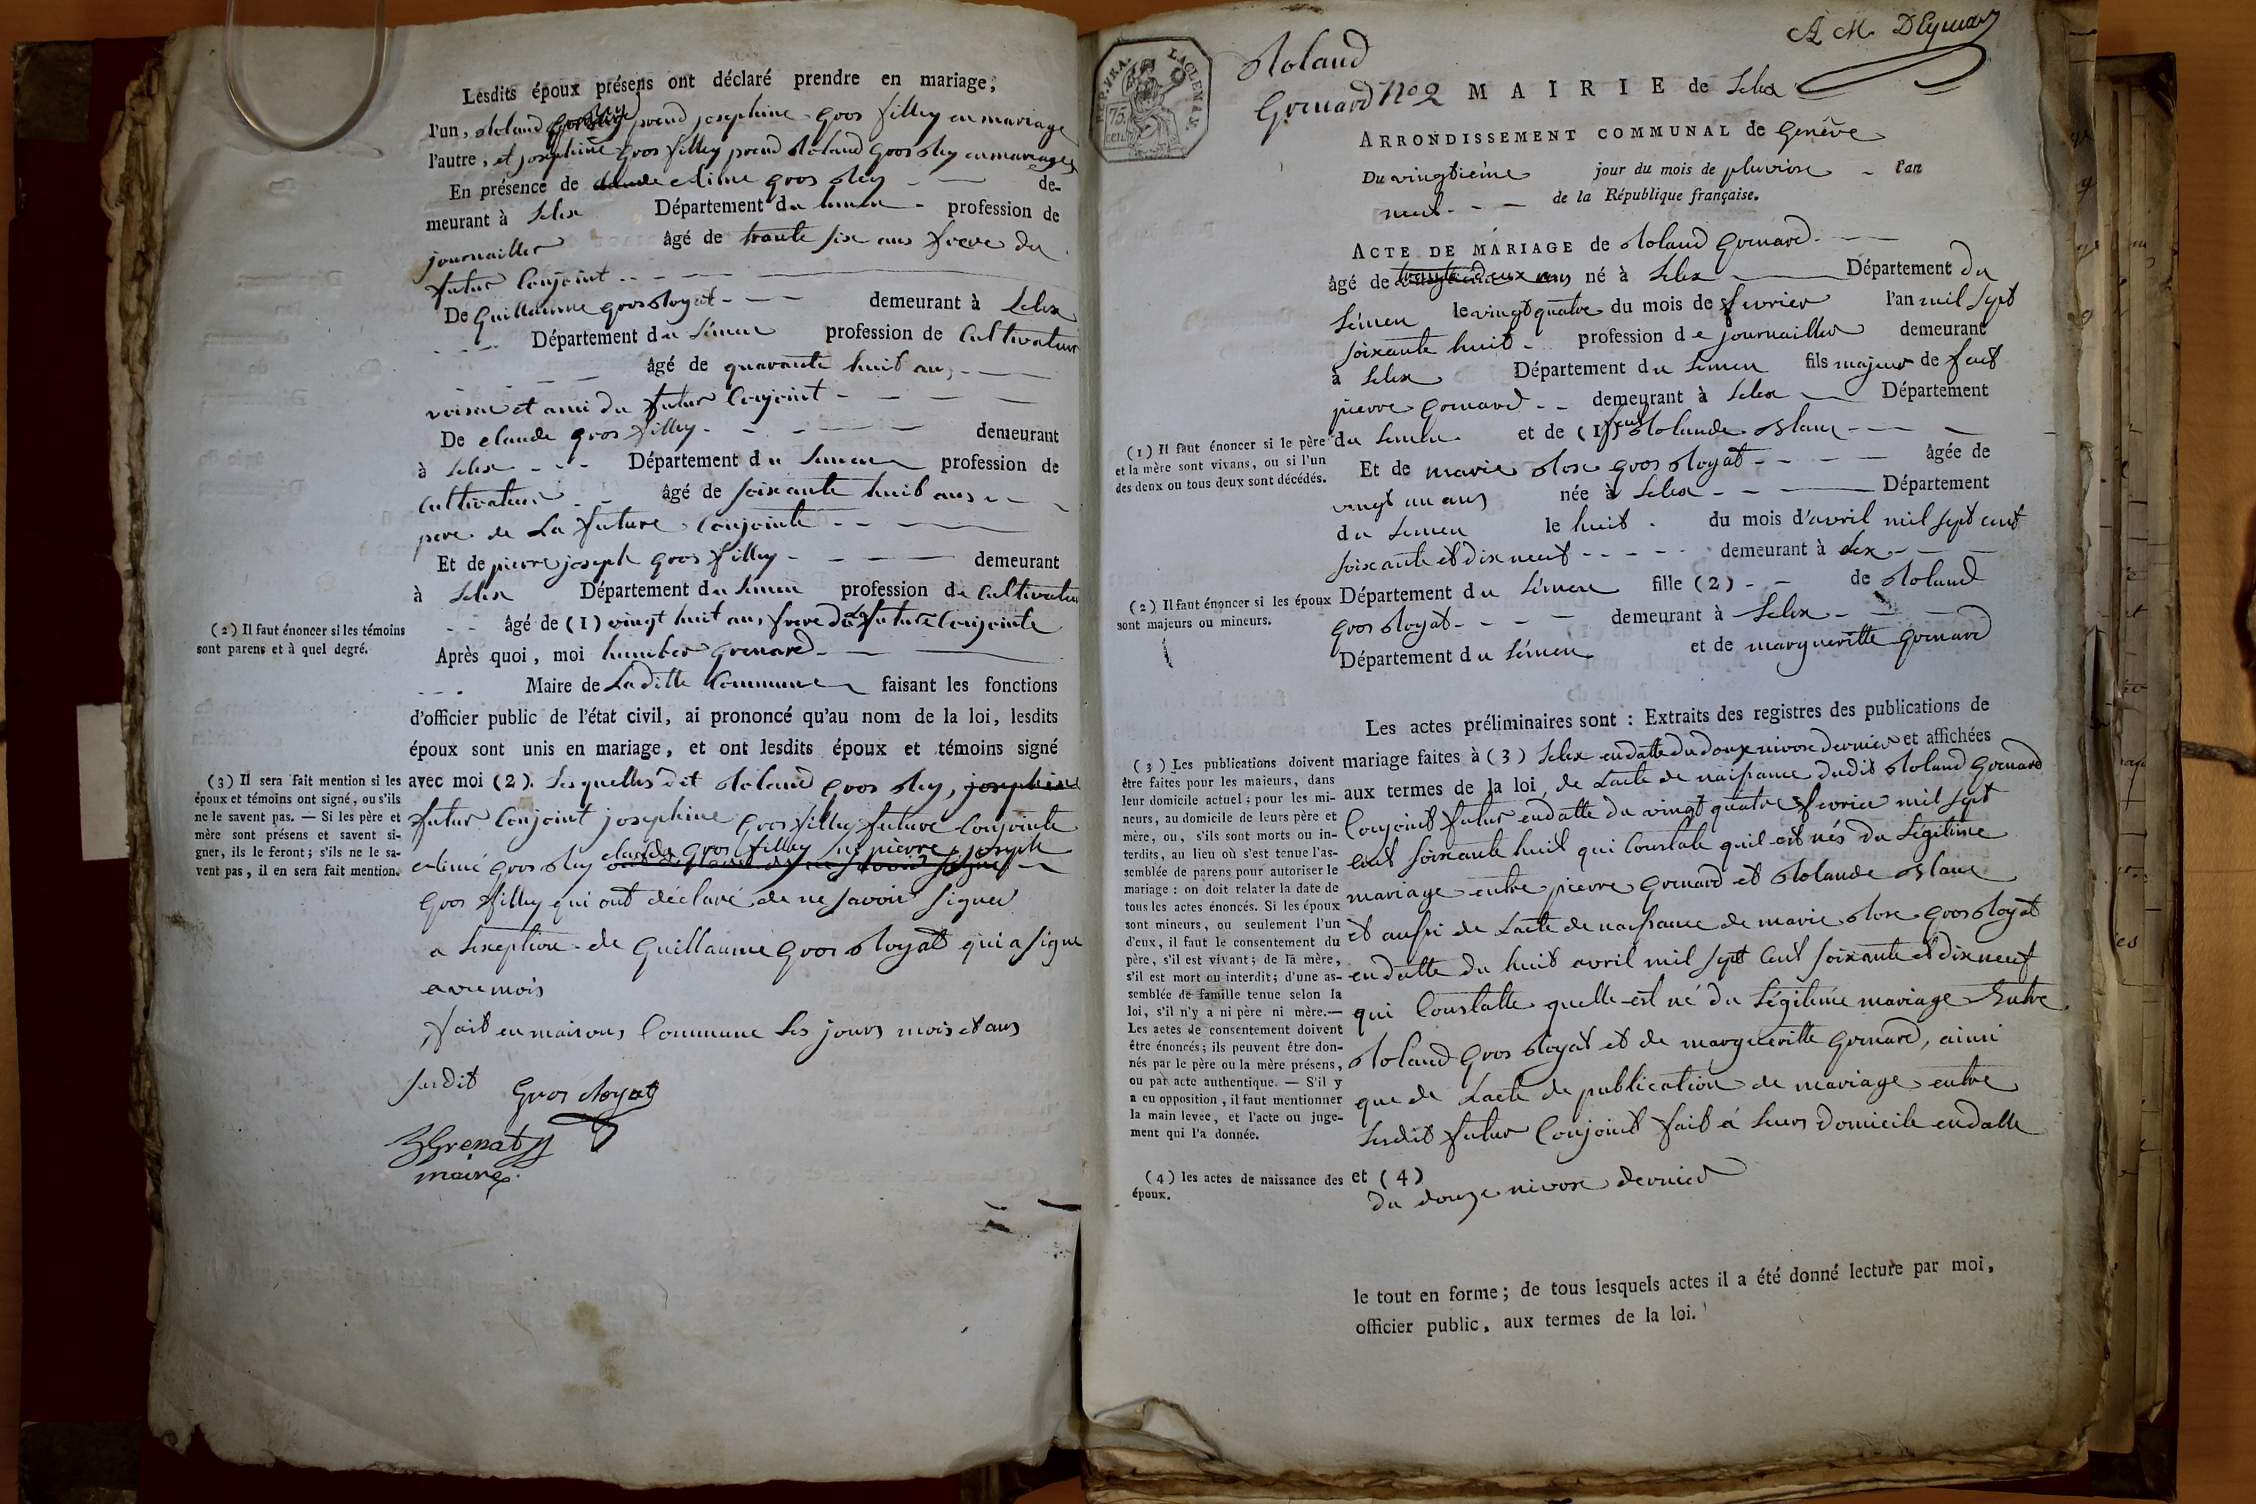 Lesdits époux présens ont déclaré prendre en mariage,
l'un, Roland prend josephine gros filley en mariage
l'autre, et josephine gros filley prend Roland Gros Rey en mariage
En présence de claude Aimé gros Rey - — de-
meurant à Lelex Département du Leman - profession de
journaillier âgé de trante six ans frere du
futur Conjoint - - - -
De Guillaume gros Royat - - - demeurant à Lelex
- - - Département du Léman profession de Cultivateur
âgé de quarante huit ans - - —
voisin et ami du futur Conjoint - - - -
De claude gros filley - - - demeurant
à Lelex - - - Département du Leman profession de
Cultivateur - - âgé de soixante huit ans - -
pere de La future Conjointe - - —
Et de pierre joseph gros filley - - - demeurant
à Lelex Département du Leman profession de Cultivateur
- - âgé de (1) vingt huit ans frere de La future Conjointe
(2) Il faut énoncer si les témoins
sont parens et à quel degré.
Après quoi, moi humber Grenard - —
- - - Maire de Laditte Commune faisant les fonctions
d'officier public de l'état civil, ai prononcé qu'au nom de la loi, lesdits
époux sont unis en mariage, et ont lesdits époux et témoins signé
(3) Il sera fait mention si les
époux et témoins ont signé, ou s'ils
ne le savent pas. — Si les père et
mère sont présens et savent si-
gner, ils le feront; s'ils ne le sa-
vent pas, il en sera fait mention.
avec moi (2). Lesquelles dit Roland gros Rey, josephine
futur Conjoint josephine gros filley future Conjointe
Aimé gros Rey claude gros filley pierre joseph
gros filley qui ont déclaré de ne savoir signer
a Lexeption de Guillaume gros Royat qui a signe
avec mois
fait en maisons Commune Les jours mois et ans
susdit Gros Royat
Grenat
maire
REP. FRA. LACLEMAN.
75.
cen.
Roland
Grenard No 2
A M DEymar
MAIRIE de Lelex
ARRONDISSEMENT COMMUNAL de Genêve
Du vingtième jour du mois de pluviose - l'an
neuf - - — de la République française.
ACTE DE MARIAGE de Roland Grenard - —
âgé de trante deux ans né à Lelex Département du
Léman le vingt quatre du mois de fevrier l'an mil sept
soixante huit - profession de journaillier demeurant
à Lelex Département du Leman fils majeur de feut
pierre Grenard - - demeurant à Lelex Département
(1) Il faut énoncer si le père
et la mère sont vivans, ou si l'un
des deux ou tous deux sont décédés.
du Leman et de (1) feut Rolande - — -
Et de marie Rose gros Royat - - - - âgée de
vingt un ans née à Lelex - - — Département
du Leman le huit . du mois d'avril mil sept cent
soixante et dix neuf - - - - - demeurant à Lex - - —
(2) Il faut énoncer si les époux
sont majeurs ou mineurs.
Département du Léman fille (2) - - de Roland
gros Royat - - - - demeurant à Lelex - - —
Département du Léman et de margueritte Grenard
Les actes préliminaires sont : Extraits des registres des publications de
mariage faites à (3) Lelex en datte du douze nivose dernier et affichées
aux termes de la loi, de Lacte de naissance dudit Roland Grenard
Conjoint futur en datte du vingt quatre fevrier mil sept
cent soixante huit qui Constate quil est nés du Legitime
mariage entre pierre Grenard et Rolande
et aussi de Lacte de naissance de marie Rose gros Royat
en datte du huit avril mil sept cent soixante et dix neuf
qui Constatte quelle est né du Légitime mariage Entre
Roland gros Royat et de margueritte Grenard, ainsi
que de Lacte de publication de mariage entre
Lesdit futur Conjoint fait à Leurs domicile en datte
(3) Les publications doivent
être faites pour les majeurs, dans
leur domicile actuel; pour les mi-
neurs, au domicile de leurs père et
mère, ou, s'ils sont morts ou in-
terdits, au lieu où s'est tenue l'as-
semblée de parens pour autoriser le
mariage : on doit relater la date de
tous les actes énoncés. Si les époux
sont mineurs, ou seulement l'un
d'eux, il faut le consentement du
père, s'il est vivant; de la mère,
s'il est mort ou interdit; d'une as-
semblée de famille tenue selon la
loi, s'il n'y a ni père ni mère.—
Les actes de consentement doivent
être énoncés; ils peuvent être don-
nés par le père ou la mère présens,
ou par acte authentique. — S'il y
a eu opposition, il faut mentionner
la main levée, et l'acte ou juge-
ment qui l'a donnée.
(4) les actes de naissance des
époux.
et (4)
du douze nivose dernier
le tout en forme; de tous lesquels actes il a été donné lecture par moi,
officier public, aux termes de la loi.